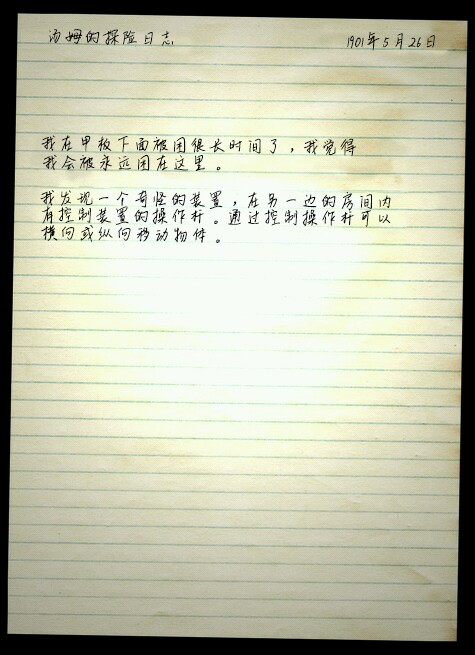 汤姆的探险日志 1901年5月26日
我在甲板下面被困很长时间了，我觉得
我会被永远困在这里。
我发现一个奇怪的装置，在另一边的房间内
有控制装置的操作杆。通过控制操作杆可以
横向或纵向移动物件。